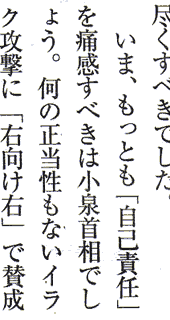 尽くすべきでした。
いま、もっとも「自己責任」
を痛感すべきは小泉首相でし
ょう。何の正当性もないイラ
ク攻撃に「右向け右」で賛成